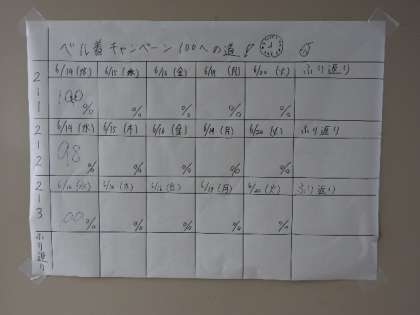 ベル着キャンペーン 100への道!
6/14(水) 6/15(木) 6/16(金) 6/19(月) 6/20(火) ふり返り
2-1 100% % % % %
6/14(水) 6/15(木) 6/16(金) 6/19(月) 6/20(火) ふり返り
2-2 98% % % % %
6/15(木) 6/16(金) 6/19(月) 6/20(火) ふり返り
2-3 % % % % %
ふり返り